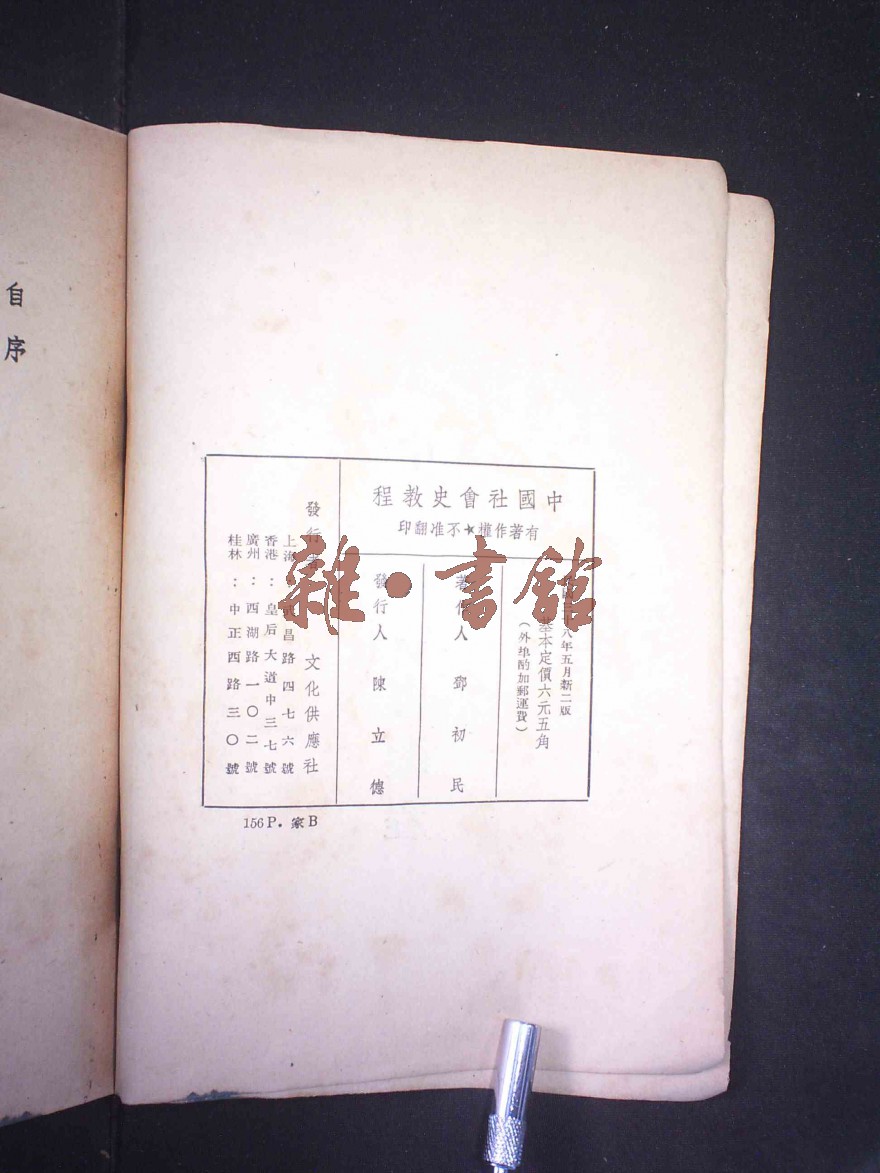 中國社會史教程
有著作權★不准翻印
八年五月新二版
基本定價六元五角
（外埠酌加郵運費）
著作人 鄧初民
發行人 陳立德
發行者 文化供應社
上海：武昌路四七六號
香港：皇后大道中三七號
廣州：西湖路一〇二號
桂林：中正西路三〇號
156P. 家B
自序
雜·書館